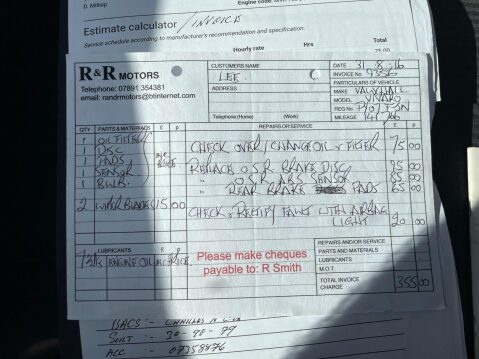 D. Millsip
Engine code:
Estimate calculator / INVOICE
Service schedule according to manufacturer's recommendation and specification.
Hourly rate Hrs Total
75.00
R&R MOTORS
Telephone: 07891 354381
email: randrmotors@btinternet.com
CUSTOMERS NAME
LEE.
ADDRESS
Telephone (Home) (Work)
DATE 31.8.16
INVOICE No.
PARTICULARS OF VEHICLE
MAKE VAUXHALL
MODEL VIVARO
REG No.
MILEAGE 141
QTY PARTS & MATERIALS £ p REPAIRS OR SERVICE £ p
1 OIL FILTER
1 DISC
1 PADS
1 SENSOR
1 BULB.
2 WIPER BLADES 15 00
CHECK OVER / CHANGE OIL & FILTER 75 00
REPLACE O.S.R. BRAKE DISC 95 00
" O.S.R ABS SENSOR 85 00
" REAR BRAKE PADS 65 00
CHECK & RECTIFY FAULT WITH AIRBAG
LIGHT 20 00
LUBRICANTS £ p
ENGINE OIL
Please make cheques
payable to: R Smith
REPAIRS AND/OR SERVICE
PARTS AND MATERIALS
LUBRICANTS
M.O.T
TOTAL INVOICE
CHARGE 355 00
BACS :-
SORT :- 30-90-79
ACC :- 07358876